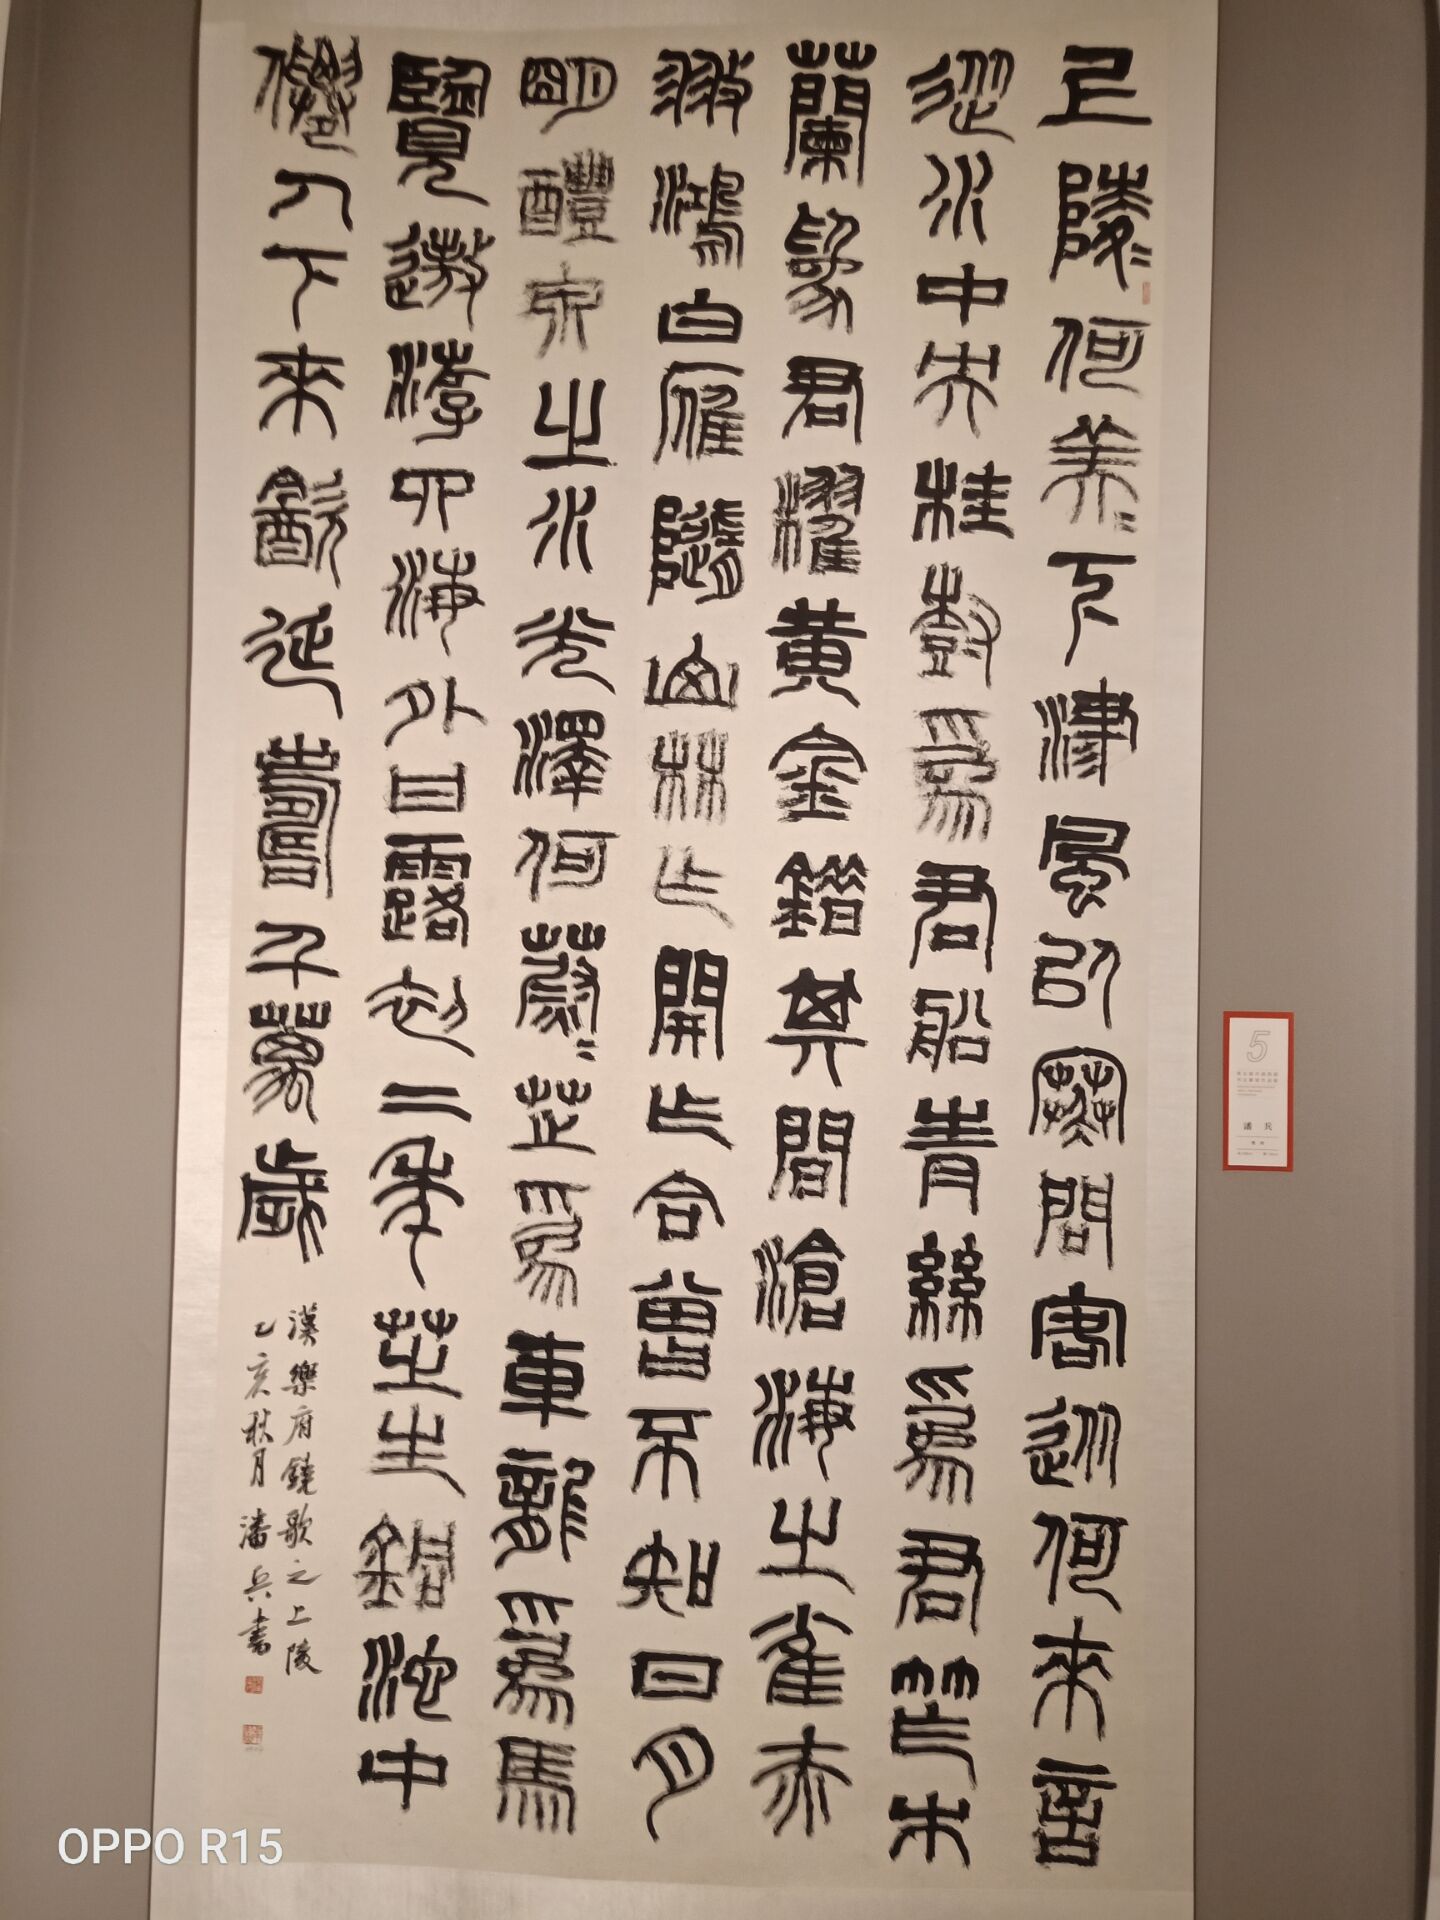 上陵〻何美〻下津風以寒問客從何來言
從水中央桂樹爲君船青絲爲君笮木
蘭爲君櫂黃金錯其間滄海之雀赤
翅鴻白雁隨山林乍開乍合曾不知日月
明醴泉之水光澤何蔚〻芝爲車龍爲馬
覽遨游四海外甘露初二年芝生銅池中
僊人下來飲延壽千萬歲
漢樂府鐃歌之上陵
乙亥秋月潘兵書
5
潘兵
OPPO R15